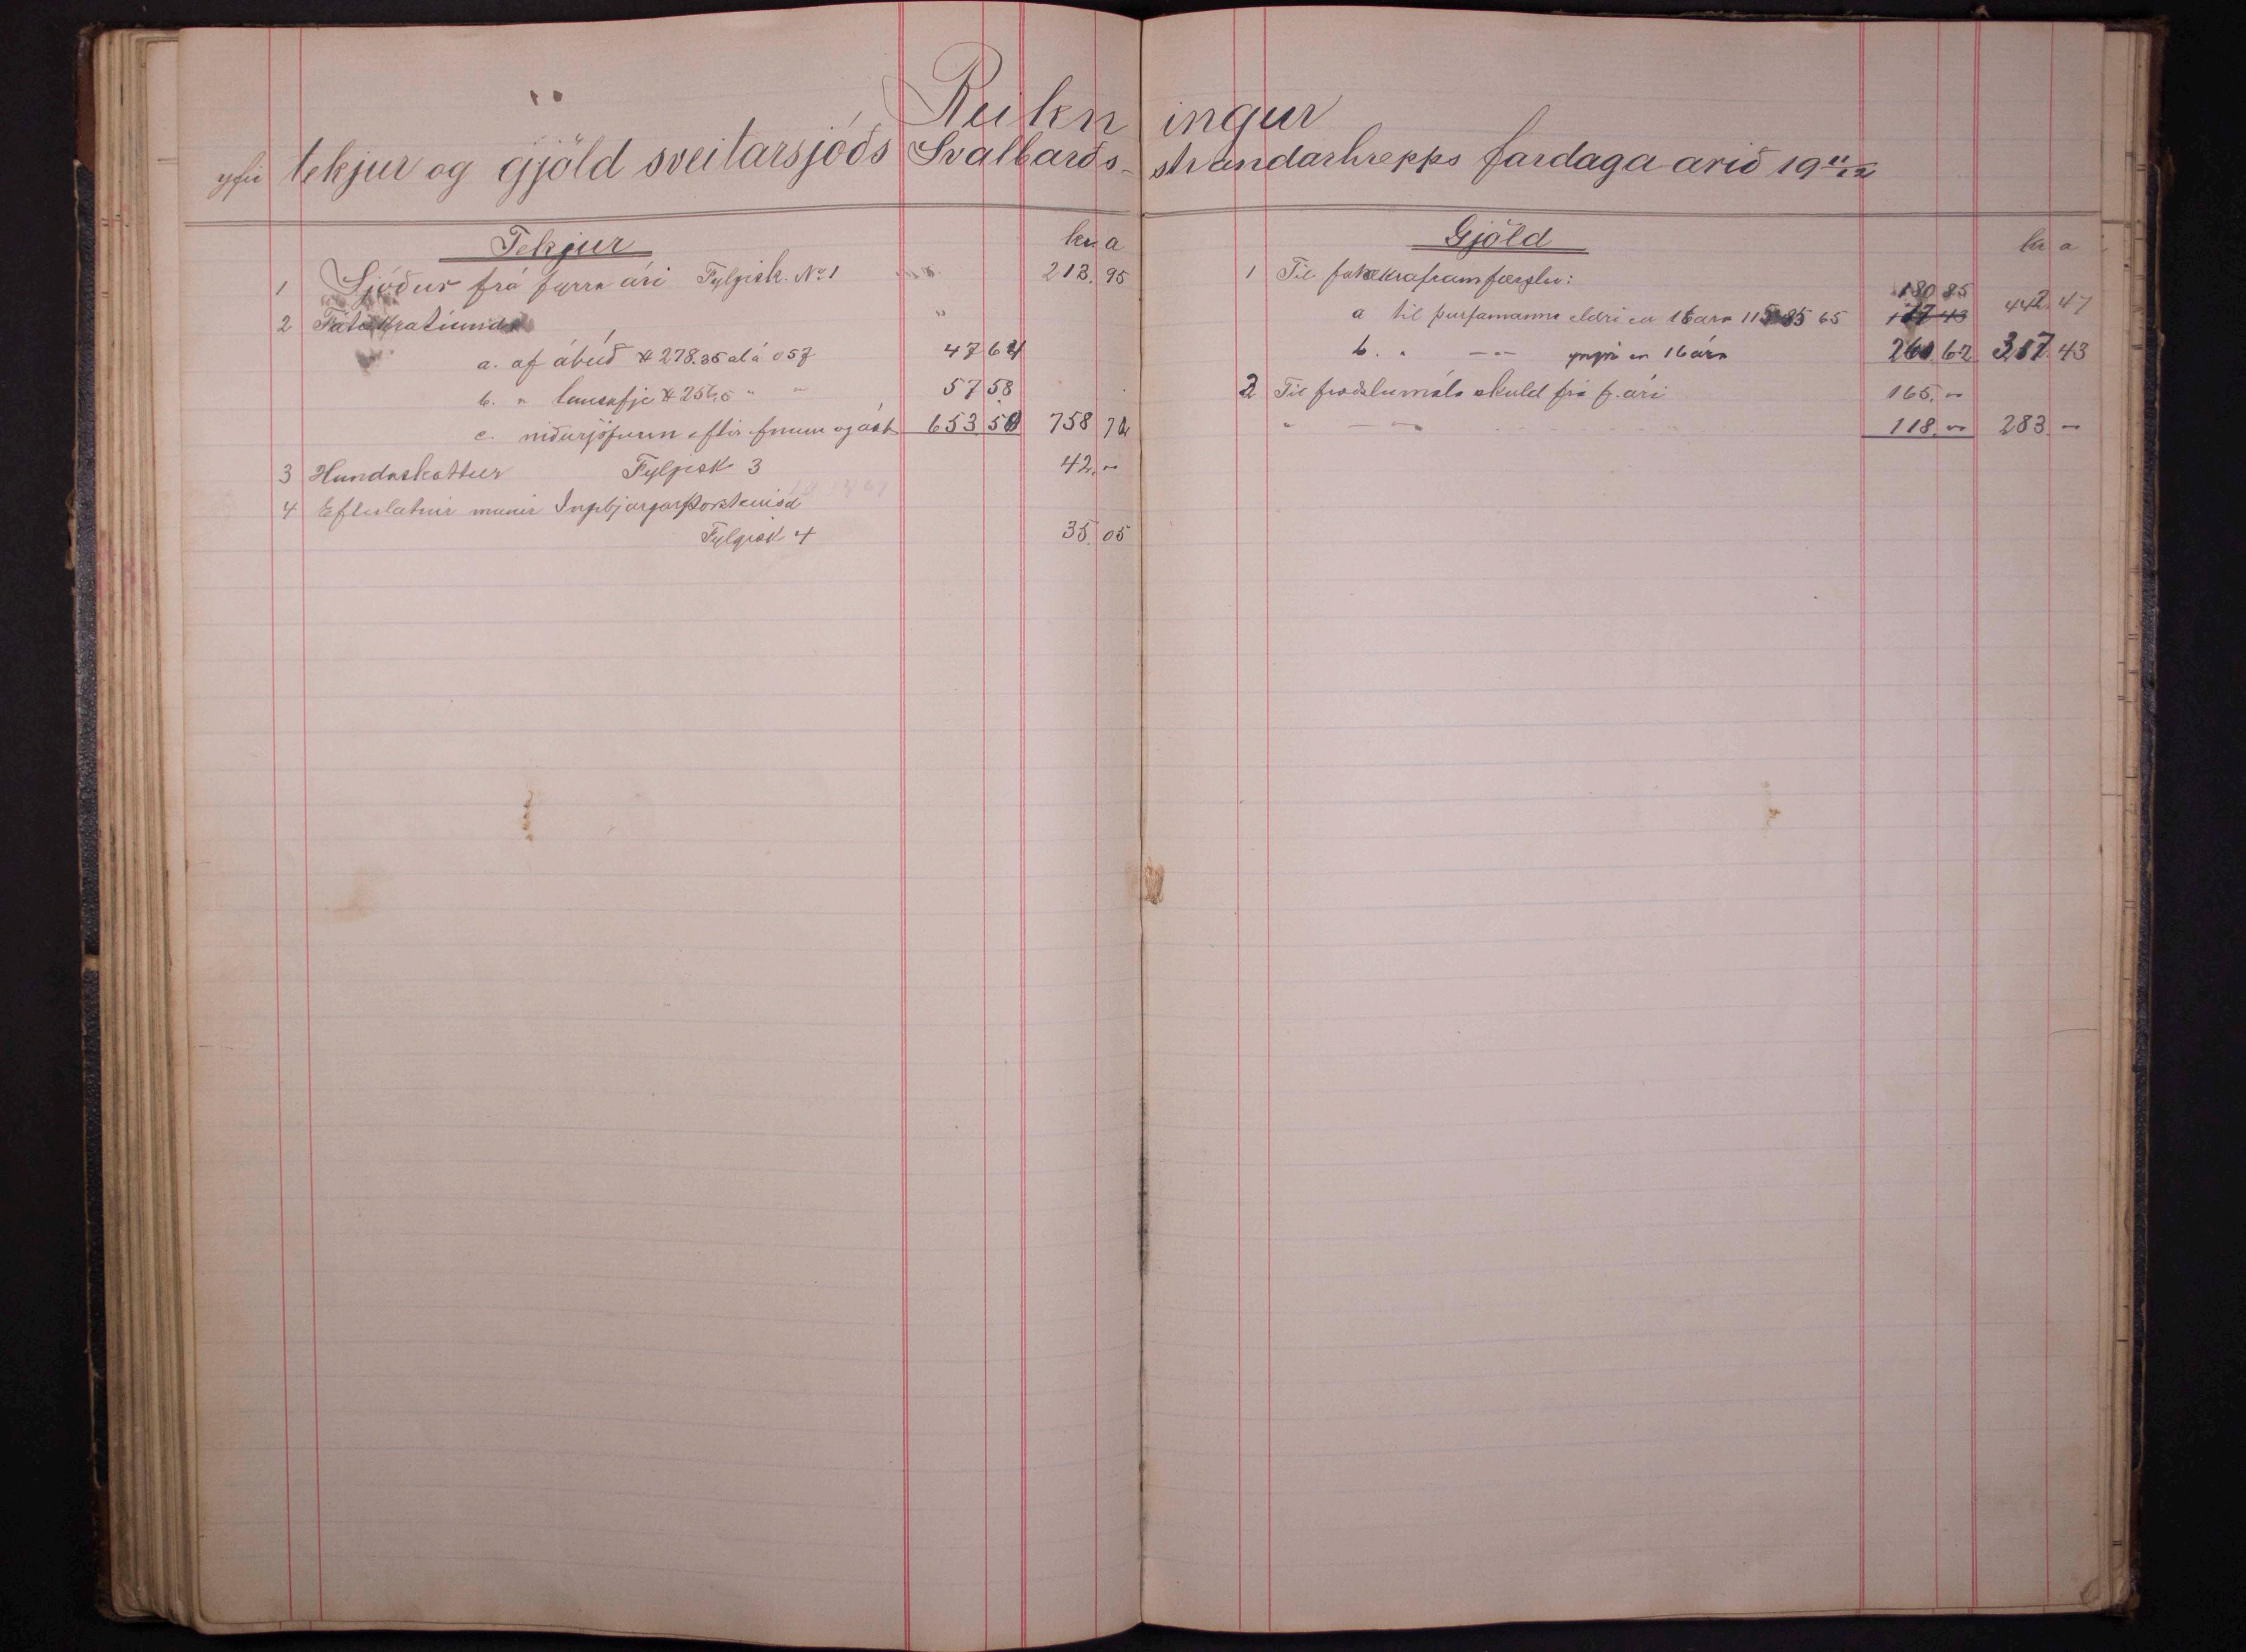 Reikningur
yfir tekjur og gjöld sveitarsjóðs Svalbarðs-strandarhrepps fardaga árið 19 11/12
Tekjur kr a
1 Sjóður frá fyrra ári Fylgisk. No 1 213. 95
2 Fátækratíund
a. af ábúð # 278.35 al á 057 47 64
b. " lausafje # 256,5 " " 57 58
c. niðurjöfnun eftir efnum og ást 653 50 758 72
3 Hundaskattur Fylgisk 3 42. "
4 Eftirlátnir munir Ingibjargar Þorsteinsd
Fylgisk 4 35. 05
Gjöld
kr a
1 Til fátækraframfærslu:
180 85
a til þurfamanna eldri en 16 ára 115 85 65 442. 47
b. " — " — yngri en 16 ára 261 62 317. 43
2 Til fræðslumála skuld frá f. ári 165. "
" — " — 118. " 283. "